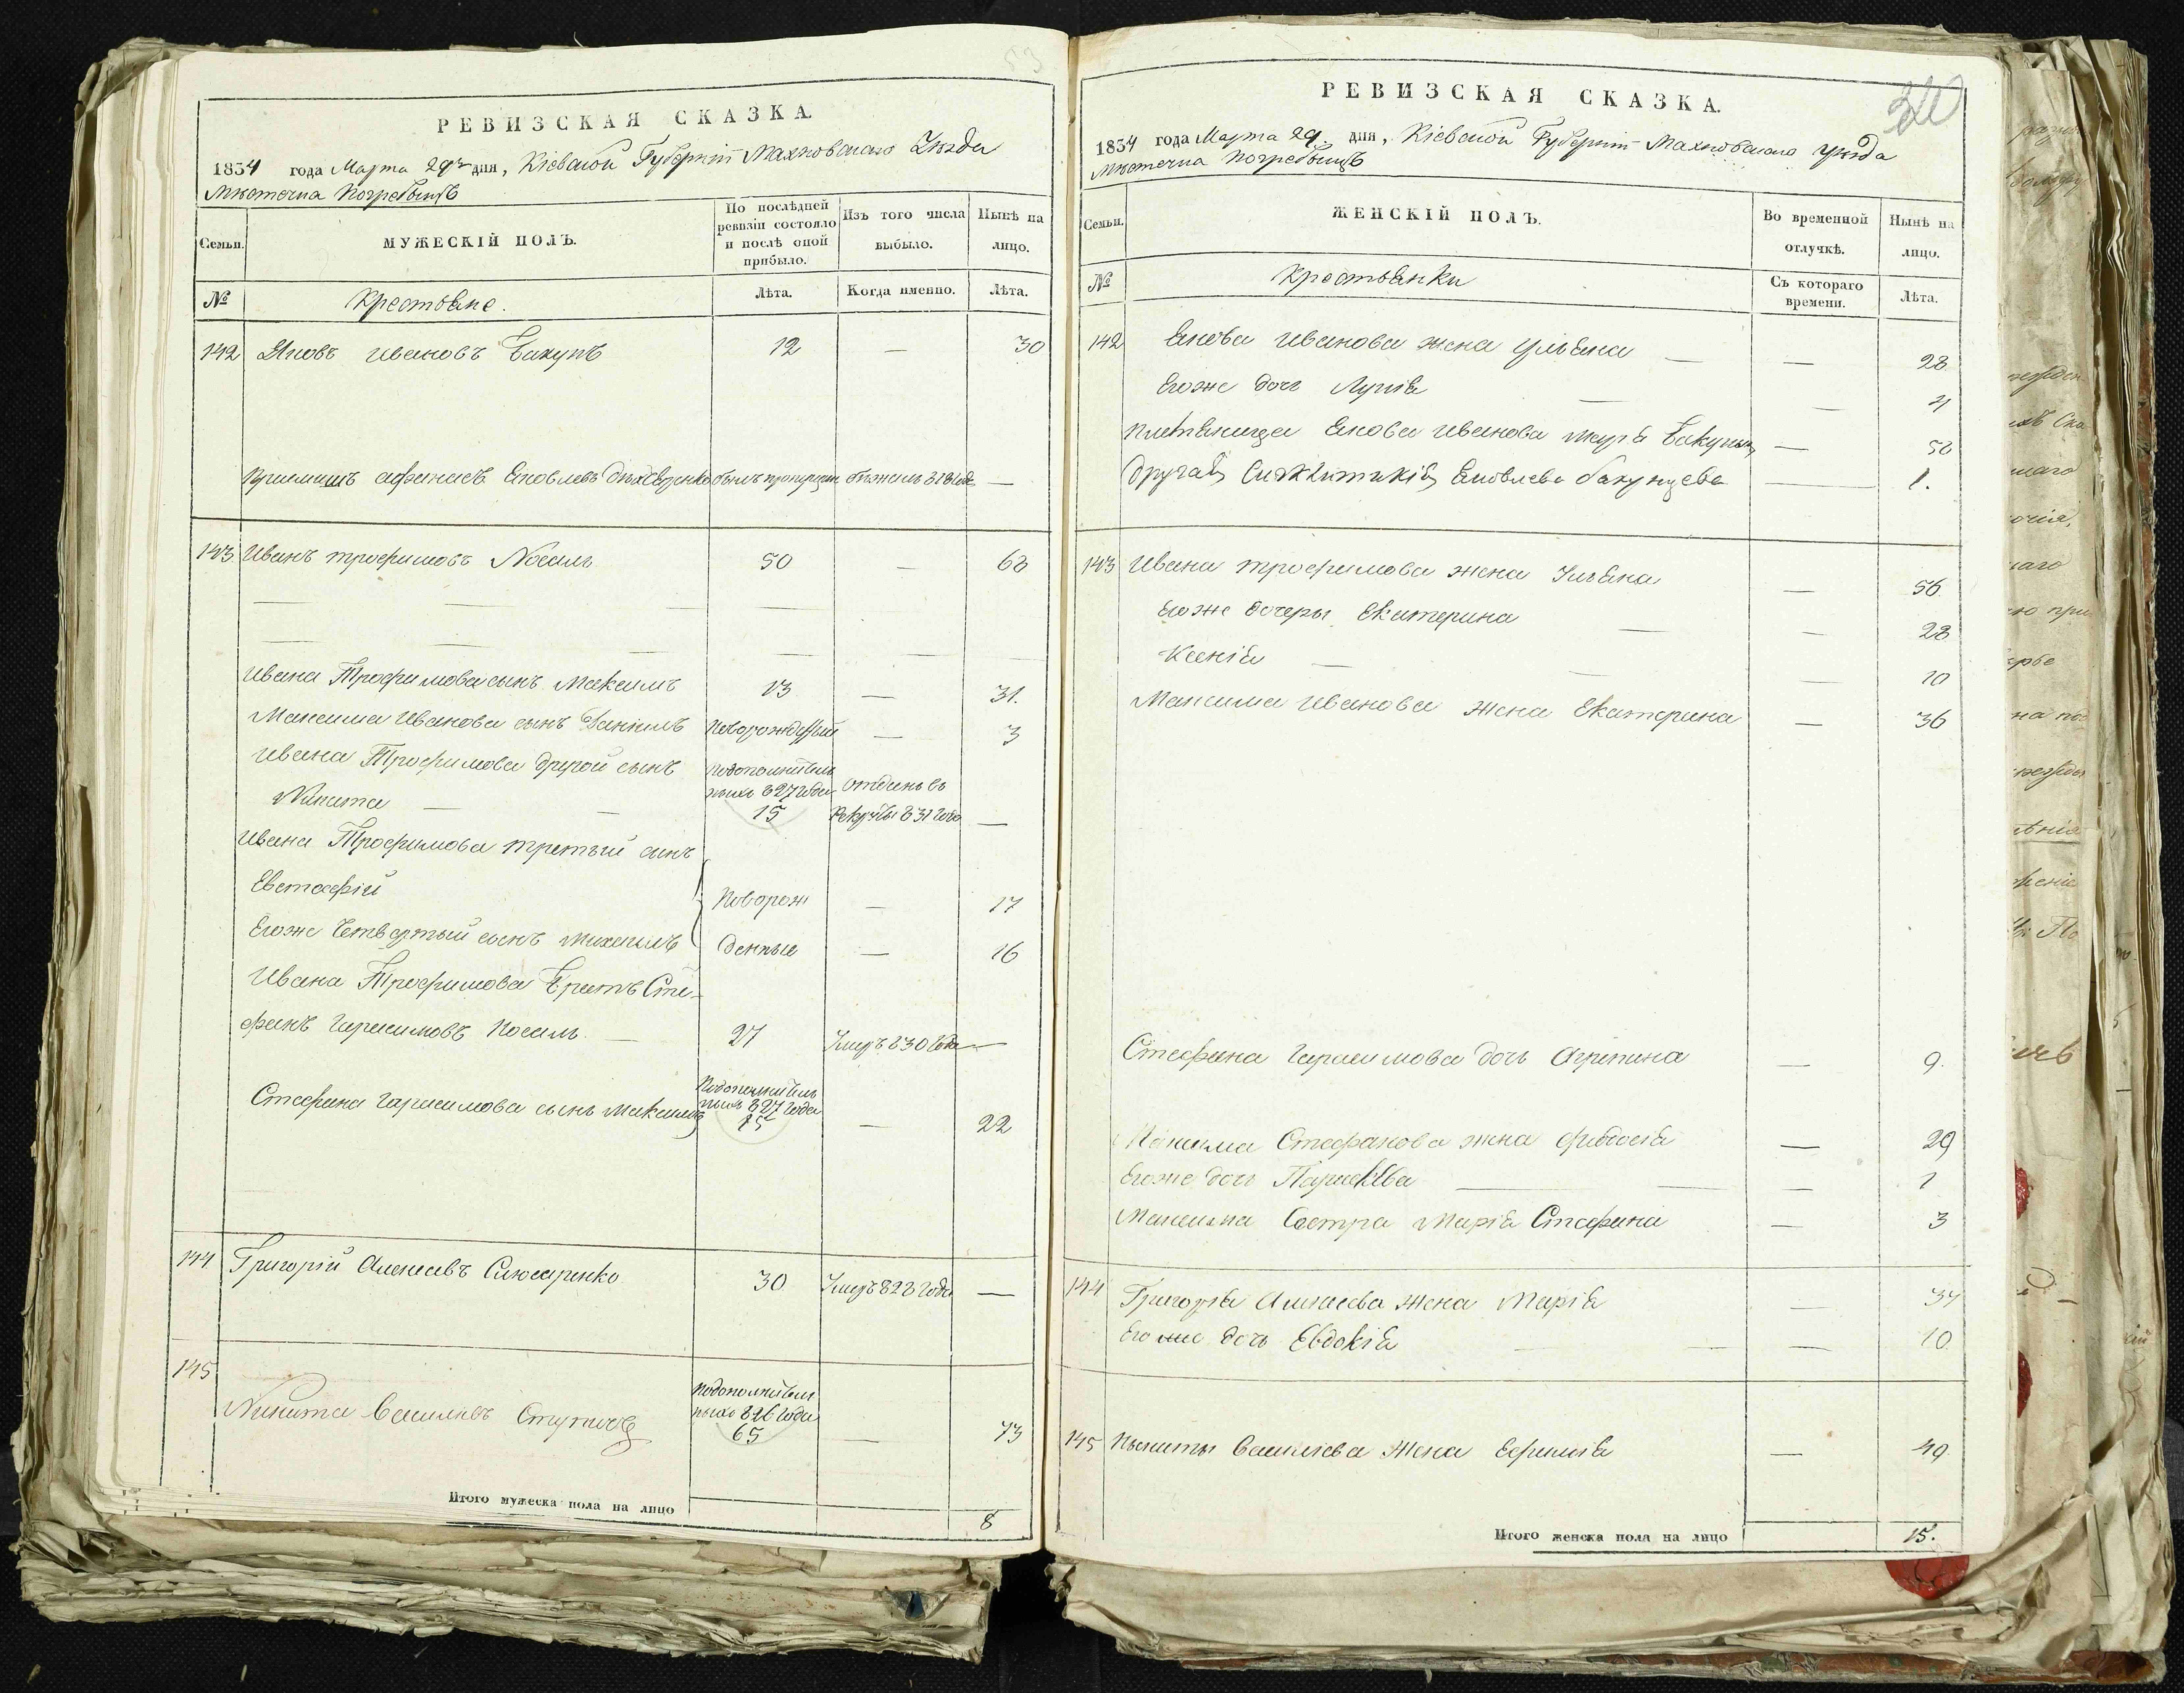 РЕВИЗСКАЯ СКАЗКА.
1834 года Марта 29 дня, Кіевской Губерніи Махновскаго Уѣзда
Мѣстечка Погребищъ
Семьи.
МУЖЕСКІЙ ПОЛЪ.
По послѣдней ревизіи состояло и послѣ оной прибыло.
Изъ того числа выбыло.
Нынѣ на лицо.
№
Крестьяне.
Лѣта.
Когда именно.
Лѣта.
142 Яковъ Ивановъ Бакунъ 12 — 30
Приемишъ Афанасъ Яковлевъ —
143 Иванъ Трофимовъ Носаль 50 — 68
Ивана Трофимова сынъ Максимъ 13 — 31.
Максима Иванова сынъ Даніилъ Новорожденный — 3
Ивана Трофимова другой сынъ
Никита — — 15 —
827 года отданъ въ
Рекруты 831 года
Ивана Трофимова третый сынъ
Евстафій Новорож — 17
Егоже Четвертый сынъ Михаилъ денные — 16
Ивана Трофимова Братъ Сте-
фанъ Гарасимовъ Носаль — 27 Умеръ 830 года —
Стефана Гарасимова сынъ Максимъ 827 года 15 — 22
144 Григорій Алексеевъ Слюсаренко 30 Умеръ 828 года —
145
Никита Василевъ 826 года 65 — 73
Итого мужеска пола на лицо 8
РЕВИЗСКАЯ СКАЗКА.
1834 года Марта 29 дня, Кіевской Губерніи Махновскаго уѣзда
Мѣстечка Погребищъ
Семьи.
ЖЕНСКІЙ ПОЛЪ.
Во временной отлучкѣ.
Нынѣ на лицо.
№
Крестьянки
Съ котораго времени.
Лѣта.
142 Якова Иванова жена Ульяна — — 28
Егоже дочь — — 4
Якова Иванова — 50
Другая Яковлева — 1.
143 Ивана Трофимова жена Ульяна — 56
Егоже дочеры Екатерина — — 28
Ксенія — — — 10
Максима Иванова жена Екатерина — 36
Стефана Гарасимова дочь Агрипина — 9.
Максима Стефанова жена Феодосія — 29
Егоже дочь Параскева — — — 1
Максима Сестра Марія Стефана — 3
144 Григорія Алексеева жена Марія — 34
Егоже дочь Евдокія — — — 10
145 Никиты Василева жена — 49.
Итого женска пола на лицо 15.